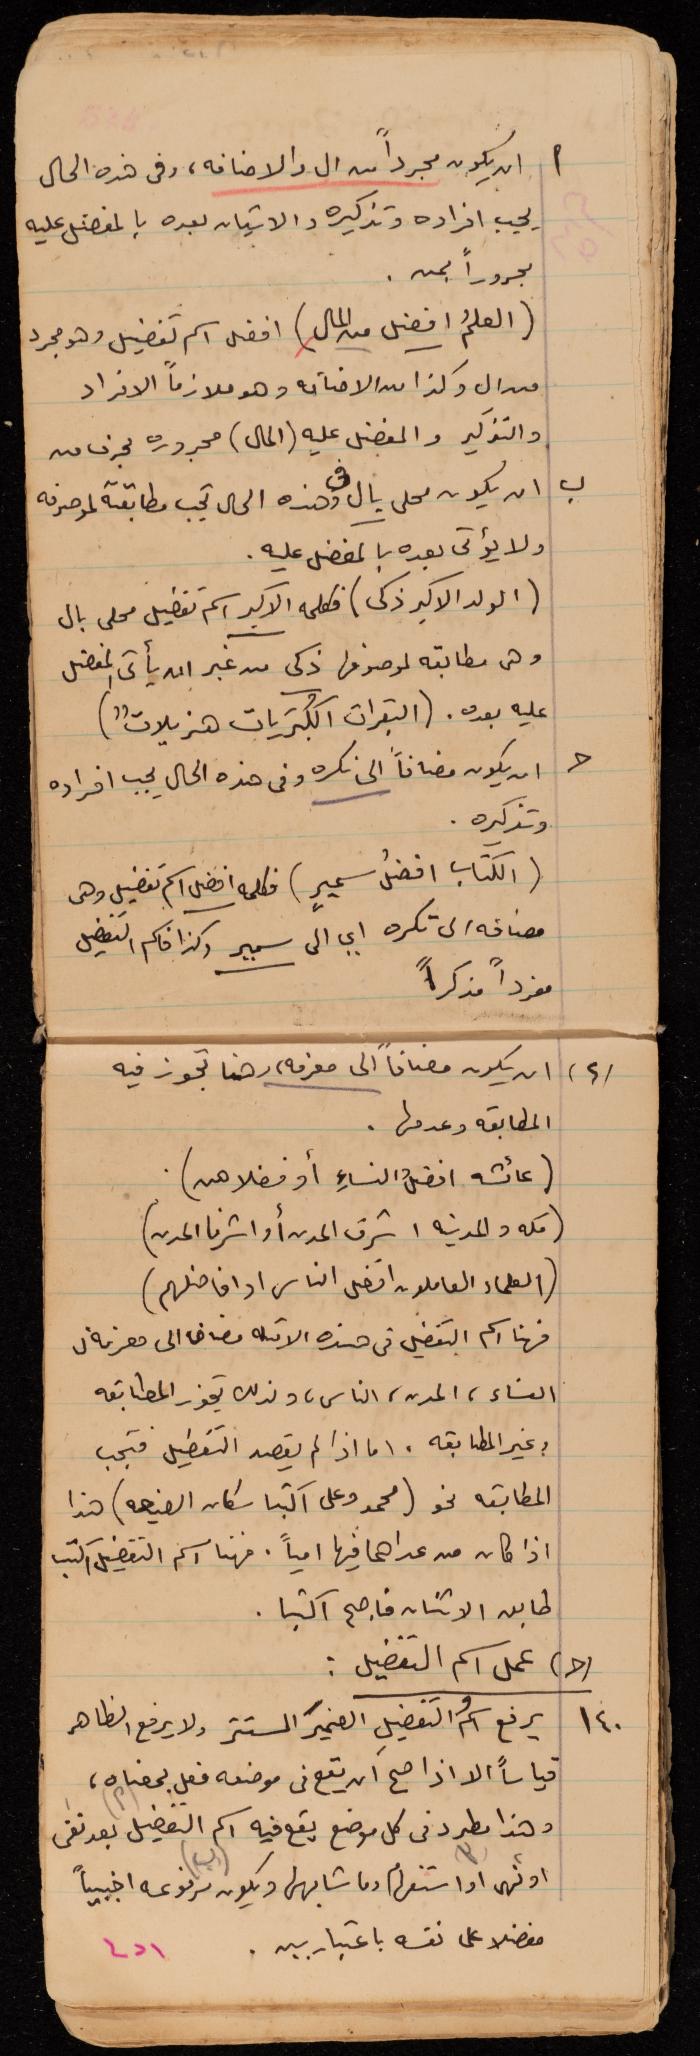 ا ان يكون مجرداً من ال والاضافه، وفى هذه الحال
يجب افراده وتذكيره والاتيان بعده بالمفضل عليه
مجروراً بمن .
(العلمُ افضل من المال) افضل اسم تفضيل وهو مجرد
من ال وكذا من الاضافه وهو ملازماً الافراد
والتذكير والمفضل عليه (المال) مجروره بحرف من
ب ان يكون محلى بال وفى هذه الحال تجب مطابقتة لموصوفه
ولا يؤتى بعده بالمفضل عليه .
(الولد الاكبر ذكى) فكلمه الاكبر اسم تفضيل محلى بال
وهى مطابقه لموصوفها ذكى من غير ان يأتى المفضل
عليه بعده . (البقرات الكُبْرَيات هزيلات)
ح ان يكون مضافاً الى نكره وفى هذه الحال يجب افراده
وتذكيره .
(الكتاب افضلُ سميرٍ) فكلمه افضل اسم تفضيل وهى
مضافه الى نكره اي الى سمير وكذا فاسم التفضيل
مفرداً مذكراً
(٤) ان يكون مضافاً الى معرفه، وهنا تجوز فيه
المطابقه وعدمها .
(عائشه افضلُ النساءِ أو فضلاهن) .
(مكه والمدينه اشرف المدن أو اشرفا المدن)
(العلماء العاملون افضل الناس او افاضلهم)
فهنا اسم التفضيل فى هذه الامثله مضاف الى معرفه
النساء، المدن، الناس، ولذلك يجوز المطابقه
وغير المطابقه . اما اذا لم يقصد التفضيل فتجب
المطابقه نحو (محمد وعلى اكتبا سكان الضيعه) هذا
اذا كان من عداهما فيها امياً . فهنا اسم التفضيل اكتب
طابق الاثنان فاصبح اكتبا .
(ح) عمل اسم التفضيل :
١٤٠ يرفع اسمُ التفضيلِ الضميرَ المستتر ولا يرفع الظاهر
قياساً الا اذا صح أن يقع فى موضعه فعل بمعناه،
وهذا مطرد فى كل موضع يقع فيه اسم التفضيل بعد نفى (٢)
او نهى او استفهام وما شابهها ويكون مرفوعه اجنبياً (ب)
مفضلا على نفسه باعتبارين .